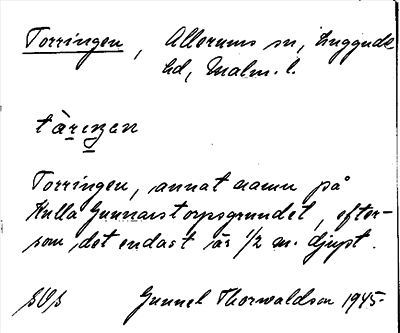 Torringen, Allerums sn, Luggude
hd, Malm. l.
tàriŋen
Torringen, annat namn på
Kulla Gunnarstorpsgrundet, efter-
som det endast är 1/2 m. djupt.
SOS Gunnel Thorwaldson 1945-